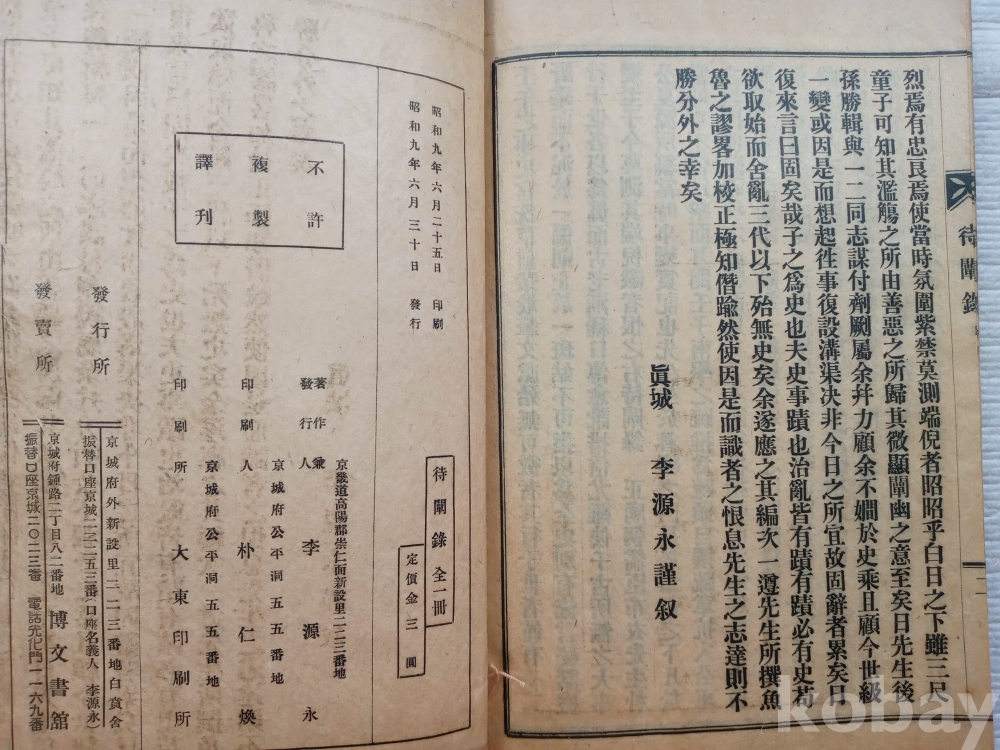 烈焉有忠良焉使當時氛圍紫禁莫測端倪者昭昭乎白日之下雖三尺
童子可知其濫觴之所由善惡之所歸其微顯闡幽之意至矣日先生後
孫勝輯與一二同志謀付剞劂屬余幷力顧余不嫺於史乘且顧今世級
一變或因是而想起徃事復設溝渠决非今日之所宜故固辭者累矣日
復來言曰固矣哉子之爲史也夫史事蹟也治亂皆有蹟有蹟必有史苟
欲取始而舍亂三代以下殆無史矣余遂應之其編次一遵先生所撰魚
魯之謬畧加校正極知僭踰然使因是而識者之恨息先生之志達則不
勝分外之幸矣
眞城 李源永謹叙
待闡錄
二
昭和九年六月二十五日 印刷
昭和九年六月三十日 發行
不許
複製
譯刊
待闡錄 全一冊
定價金三圓
京畿道高陽郡崇仁面新設里二一三番地
著作兼發行人 李源永
京城府公平洞五五番地
印刷人 朴仁煥
京城府公平洞五五番地
印刷所 大東印刷所
發行所
京城府外新設里二一三番地白賁舍
振替口座京城二二二五三番(口座名義人 李源永)
發賣所
京城府鍾路二丁目八二番地 博文書舘
振替口座京城二〇二三番 電話光化門一一六九番
kobay